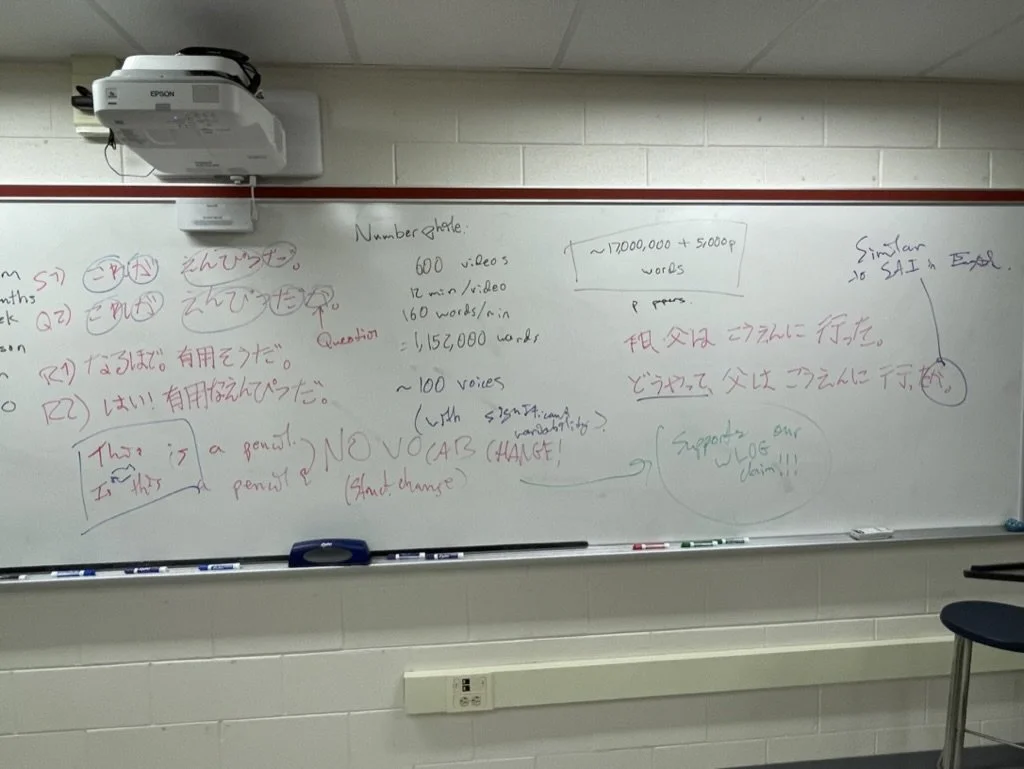 EPSON
S1) これは えんぴつだ。
Q2) これは えんぴつだか。
Question
R1) なるほど。有用そうだ。
R2) はい! 有用なえんぴつだ。
This is a pencil.
Is this pencil
NO VOCAB CHANGE!
(Struct. change)
Numberphile:
600 videos
12 min/video
160 words/min
= 1,152,000 words
~100 voices
(with significant variability).
5,000p
words
p papers.
Similar
to SAI in
祖父は こうえんに 行った。
どうやって 父は こうえんに 行
Supports our
WLOG
claim!!!
m
nths
ek
son
n
O